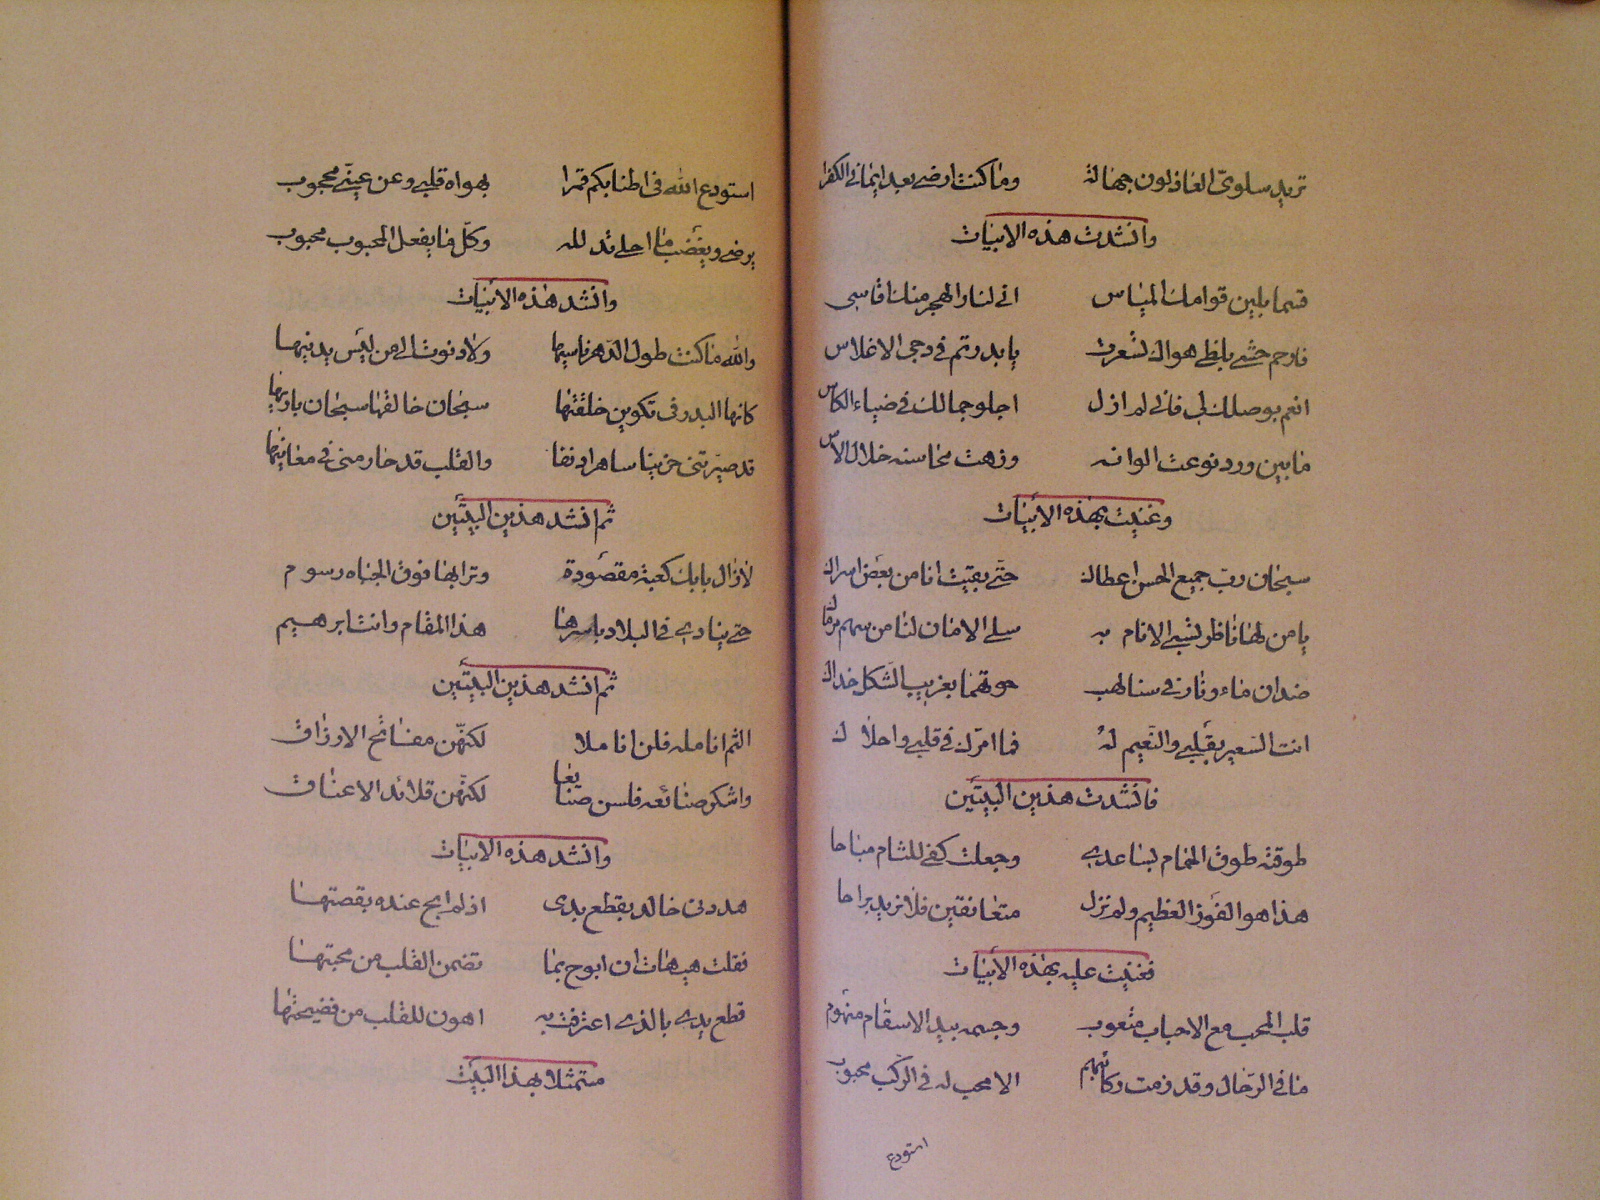 تريد سلوىّ العاذلون جهالة وما كنت ارضى بعد ايمانى الكفرا
وانشدت هذه الابيات
قسما بلين قوامك المياس انى لنار الهجر منك اقاسى
فارحم حشى بلظى هواك تسعرت يا بدر تم فى دجى الاغلاس
انعم بوصلك لى فانى لم ازل اجلو جمالك فى ضياء الكاس
ما بين ورد نوعت الوانه وزهت محاسنه خلال الاس
وغنيت بهذه الابيات
سبحان رب جميع الحسن اعطاك حتى بقيت انا من بعض اسراك
يا من لها ناظر تسبى الانام به سلى الامان لنا من سهم مرماك
ضدان ماء ونار فى سنا لهب حوتهما بغريب الشكل خداك
انت السعير بقلبى والنعيم له فما امرّك فى قلبى واحلاك
فانشدت هذين البيتين
طوقته طوق الحمام بساعدى وجعلت كفى للثام مباحا
هذا هو الفوز العظيم ولم نزل متعانقين فلا نريد براحا
فغنيت عليه بهذه الابيات
قلب المحب مع الاحباب متعوب وجسمه بيد الاسقام منهوب
ما فى الرحال وقد زمت ركائبهم الا محب له فى الركب محبوب
استودع
استودع الله فى اطنابكم قمرا يهواه قلبى وعن عينى محجوب
يرضى ويغضب ما احلى تدلله وكلّ ما يفعل المحبوب محبوب
وانشد هذه الابيات
والله ما كنت طول الدهر ناسيها ولا دنوت الى من ليس يدنيها
كانها البدر فى تكوين خلقتها سبحان خالقها سبحان باريها
قد صيرتنى حزينا ساهرا دنفا والقلب قد حار منى فى معانيها
ثم انشد هذين البيتين
لازال بابك كعبة مقصودة وترابها فوق الجباه رسوم
حتى ينادى فى البلاد باسرها هذا المقام وانت ابرهيم
ثم انشد هذين البيتين
الثم انامله فلن اناملا لكنهّن مفاتح الارزاق
واشكر صنائعه فلسن صنايعا لكنهّن قلائد الاعناق
وانشد هذه الابيات
هددنى خالد بقطع يدى اذ لم ابح عنده بقصتها
فقلت هيهات ان ابوح بما تضمن القلب من محبتها
قطع يدى بالذى اعترفت به اهون للقلب من فضيحتها
متمثلا بهذا البيت